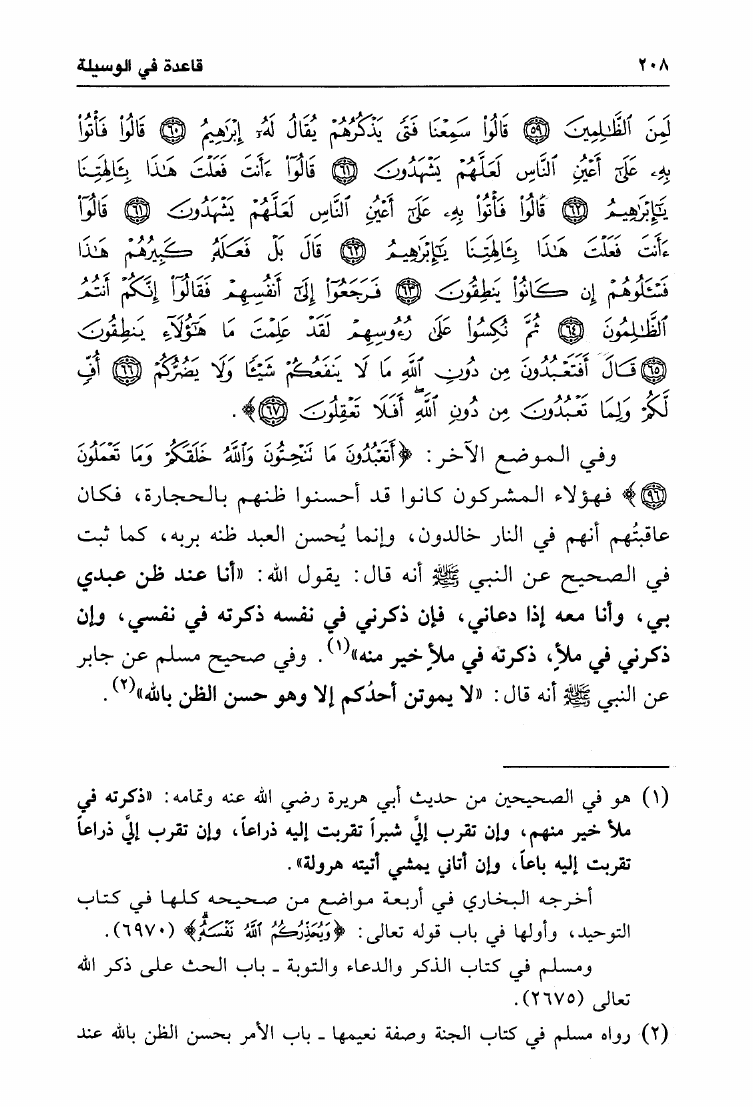 ٢٠٨ قاعدة في الوسيلة
لَمِنَ ٱلظَّٰلِمِينَ ٥٩ قَالُوا۟ سَمِعْنَا فَتًى يَذْكُرُهُمْ يُقَالُ لَهُۥٓ إِبْرَٰهِيمُ ٦٠ قَالُوا۟ فَأْتُوا۟
بِهِۦ عَلَىٰٓ أَعْيُنِ ٱلنَّاسِ لَعَلَّهُمْ يَشْهَدُونَ ٦١ قَالُوٓا۟ ءَأَنتَ فَعَلْتَ هَٰذَا بِـَٔالِهَتِنَا
يَٰٓإِبْرَٰهِيمُ ٦٢ قَالُوا۟ فَأْتُوا۟ بِهِۦ عَلَىٰٓ أَعْيُنِ ٱلنَّاسِ لَعَلَّهُمْ يَشْهَدُونَ ٦١ قَالُوٓا۟
ءَأَنتَ فَعَلْتَ هَٰذَا بِـَٔالِهَتِنَا يَٰٓإِبْرَٰهِيمُ ٦٢ قَالَ بَلْ فَعَلَهُۥ كَبِيرُهُمْ هَٰذَا
فَسْـَٔلُوهُمْ إِن كَانُوا۟ يَنطِقُونَ ٦٣ فَرَجَعُوٓا۟ إِلَىٰٓ أَنفُسِهِمْ فَقَالُوٓا۟ إِنَّكُمْ أَنتُمُ
ٱلظَّٰلِمُونَ ٦٤ ثُمَّ نُكِسُوا۟ عَلَىٰ رُءُوسِهِمْ لَقَدْ عَلِمْتَ مَا هَٰٓؤُلَآءِ يَنطِقُونَ
٦٥ قَالَ أَفَتَعْبُدُونَ مِن دُونِ ٱللَّهِ مَا لَا يَنفَعُكُمْ شَيْـًٔا وَلَا يَضُرُّكُمْ ٦٦ أُفٍّ
لَّكُمْ وَلِمَا تَعْبُدُونَ مِن دُونِ ٱللَّهِ ۖ أَفَلَا تَعْقِلُونَ ٦٧﴾.
وفي الموضع الآخر: ﴿أَتَعْبُدُونَ مَا تَنْحِتُونَ وَٱللَّهُ خَلَقَكُمْ وَمَا تَعْمَلُونَ
٩٦﴾ فهؤلاء المشركون كانوا قد أحسنوا ظنهم بالحجارة، فكان
عاقبتُهم أنهم في النار خالدون، وإنما يُحسن العبد ظنه بربه، كما ثبت
في الصحيح عن النبي ﷺ أنه قال: يقول الله: «أنا عند ظن عبدي
بي، وأنا معه إذا دعاني، فإن ذكرني في نفسه ذكرته في نفسي، وإن
ذكرني في ملأٍ، ذكرته في ملأٍ خير منه»(١). وفي صحيح مسلم عن جابر
عن النبي ﷺ أنه قال: «لا يموتن أحدُكم إلا وهو حسن الظن بالله»(٢).
(١) هو في الصحيحين من حديث أبي هريرة رضي الله عنه وتمامه: «ذكرته في
ملأ خير منهم، وإن تقرب إليَّ شبراً تقربت إليه ذراعاً، وإن تقرب إليَّ ذراعاً
تقربت إليه باعاً، وإن أتاني يمشي أتيته هرولة».
أخرجه البخاري في أربعة مواضع من صحيحه كلها في كتاب
التوحيد، وأولها في باب قوله تعالى: ﴿وَيُحَذِّرُكُمُ ٱللَّهُ نَفْسَهُۥ ۗ﴾ (٦٩٧٠).
ومسلم في كتاب الذكر والدعاء والتوبة ـ باب الحث على ذكر الله
تعالى (٢٦٧٥).
(٢) رواه مسلم في كتاب الجنة وصفة نعيمها ـ باب الأمر بحسن الظن بالله عند